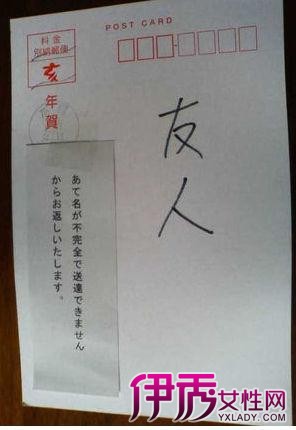 POST CARD
料金
別納郵便
亥
年賀
友人
あて名が不完全で送達できません
からお返しいたします。
伊秀女性网
YXLADY.COM